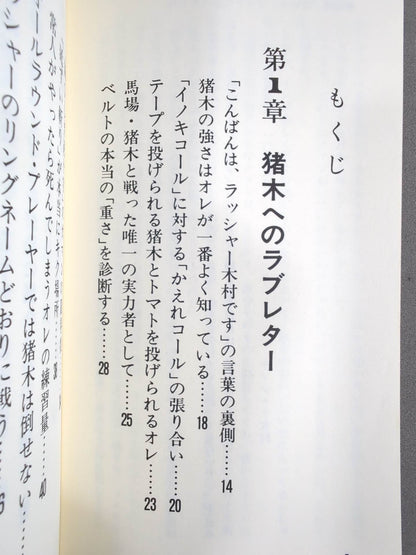 もくじ
第1章 猪木へのラブレター
「こんばんは、ラッシャー木村です」の言葉の裏側……14
猪木の強さはオレが一番よく知っている……18
「イノキコール」に対する「かえれコール」の張り合い……20
テープを投げられる猪木とトマトを投げられるオレ……23
馬場・猪木と戦った唯一の実力者として……25
ベルトの本当の「重さ」を診断する……28
人がやったら死んでしまうオレの練習量……40
ールラウンド・プレーヤーでは猪木は倒せない
シャーのリングネームどおりに戦う